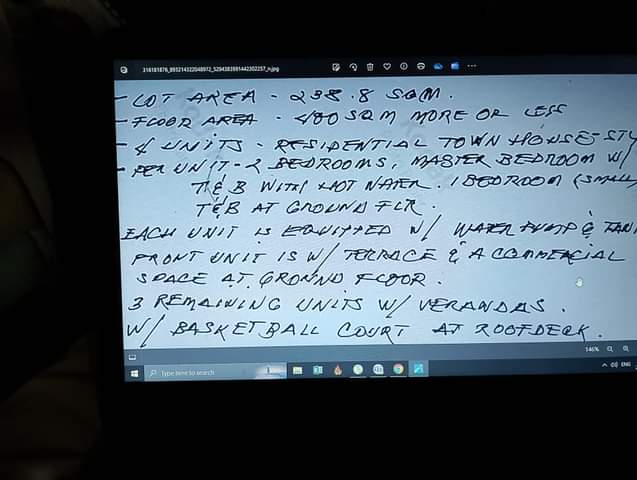 318181876_893214322048972_5294383991442302257_n.jpg
- LOT AREA - 238.8 SQM.
- FLOOR AREA - 400 SQM MORE OR LESS
- 4 UNITS - RESIDENTIAL TOWN HOUSE-STY
- PER UNIT - 2 BEDROOMS, MASTER BEDROOM W/
T&B WITH HOT WATER. 1 BEDROOM (SMALL
T&B AT GROUND FLR.
EACH UNIT IS EQUITTED W/ WATER PUMP & TAN
FRONT UNIT IS W/ TERRACE & A COMMERCIAL
SPACE AT GROUND FLOOR.
3 REMAINING UNITS W/ VERANDAS.
W/ BASKETBALL COURT AT ROOFDECK.
146%
Type here to search
ENG